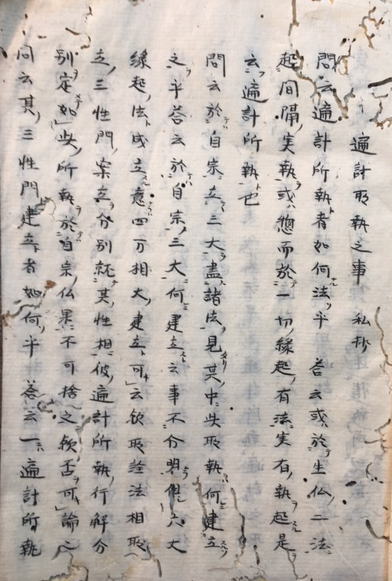 遍計所執之事 私抄
問云遍計所執者如何法乎 答云或於生仏二法
起間隔実執或惣而於一切縁起有法実有執起是
云遍計所執也
問云於自宗立三大尽諸法見其中失所執何建立
之乎答云於自宗三大何建立云事不分明但六大
縁起法成立意四万相大建立可云欤所詮法相所
立三性門案立分別就其性相彼遍計所執行解分
別定如此所執於自宗仏果不可捨之欤否可論之
問云其三性門建立者如何乎 答云一遍計所執